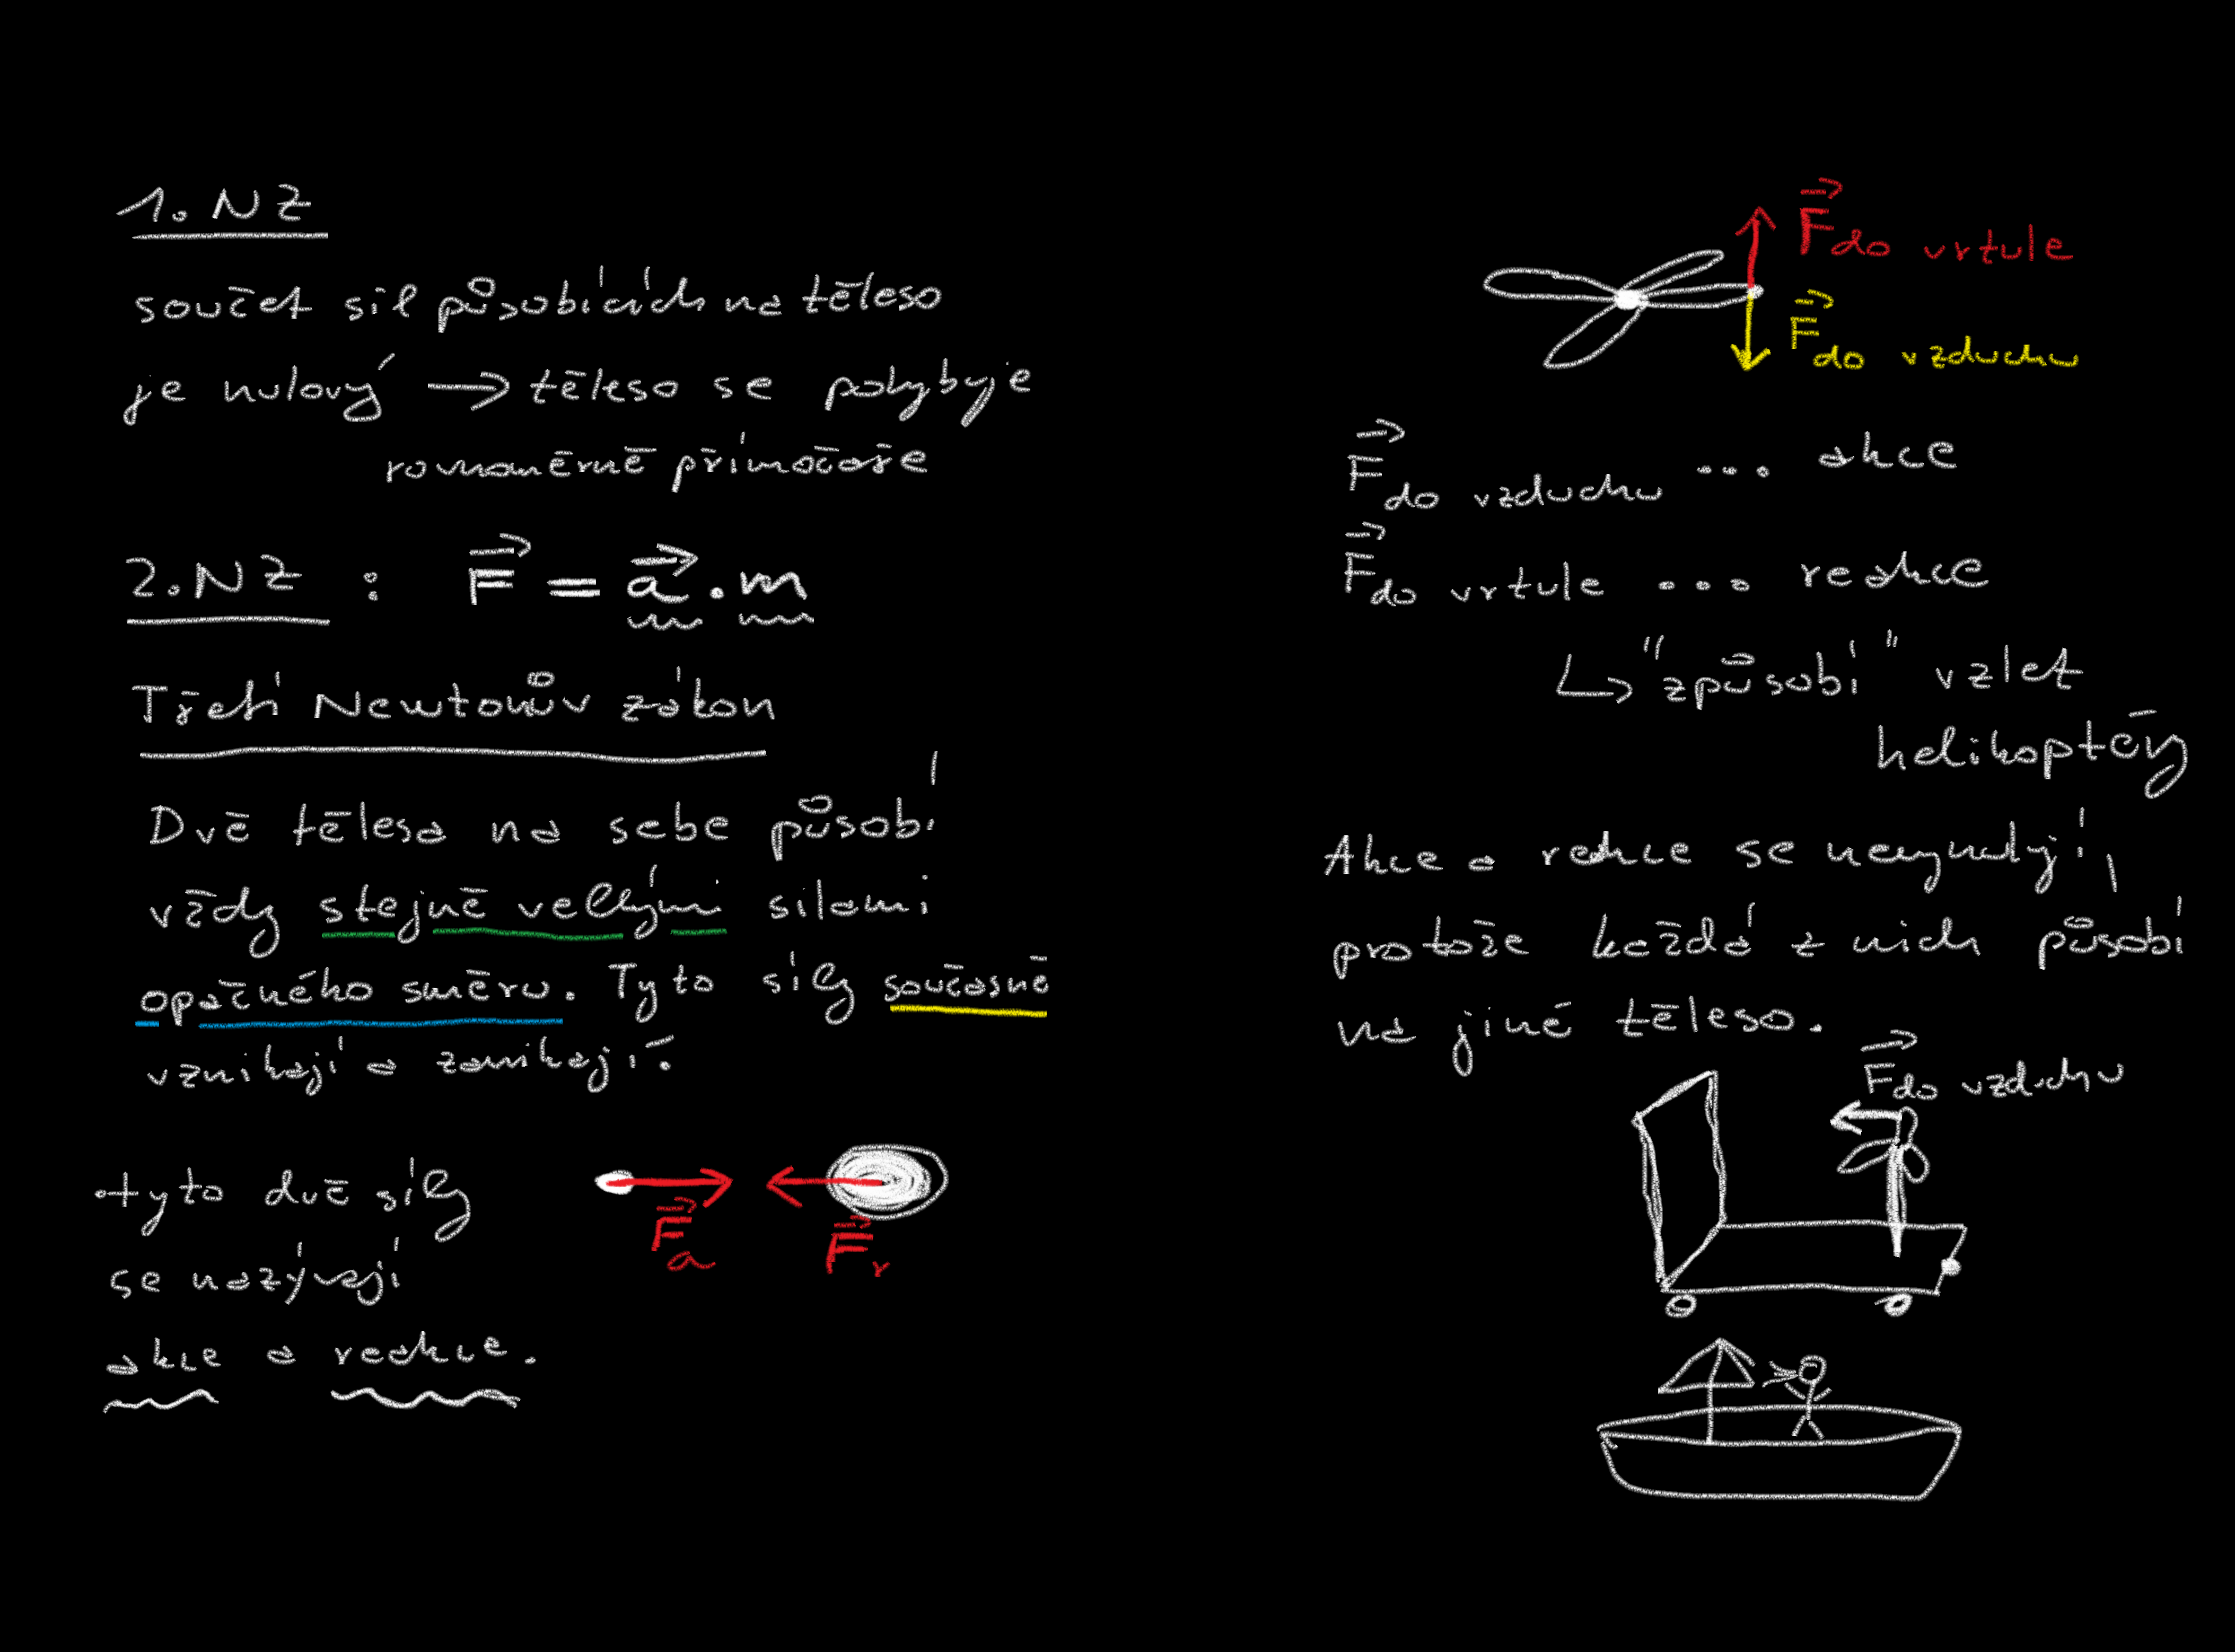 1. NZ
součet sil působících na těleso
je nulový → těleso se pohybuje
rovnoměrně přímočaře
2. NZ : F⃗ = a⃗ . m
Třetí Newtonův zákon
Dvě tělesa na sebe působí
vždy stejně velkými silami
opačného směru. Tyto síly současně
vznikají a zanikají.
tyto dvě síly
se nazývají
akce a reakce.
F⃗a F⃗r
F⃗do vrtule
F⃗do vzduchu
F⃗do vzduchu ... akce
F⃗do vrtule ... reakce
↳ "způsobí" vzlet
helikoptéry
Akce a reakce se nevyruší,
protože každá z nich působí
na jiné těleso.
F⃗do vzduchu